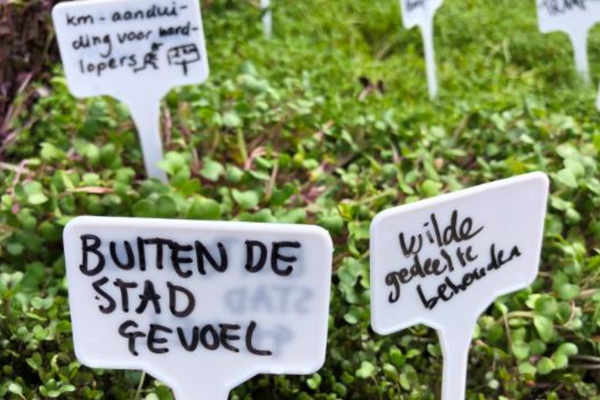 km-aandui-
ding voor hard-
lopers
BUITEN DE
STAD
GEVOEL
Wilde
gedeelte
behouden